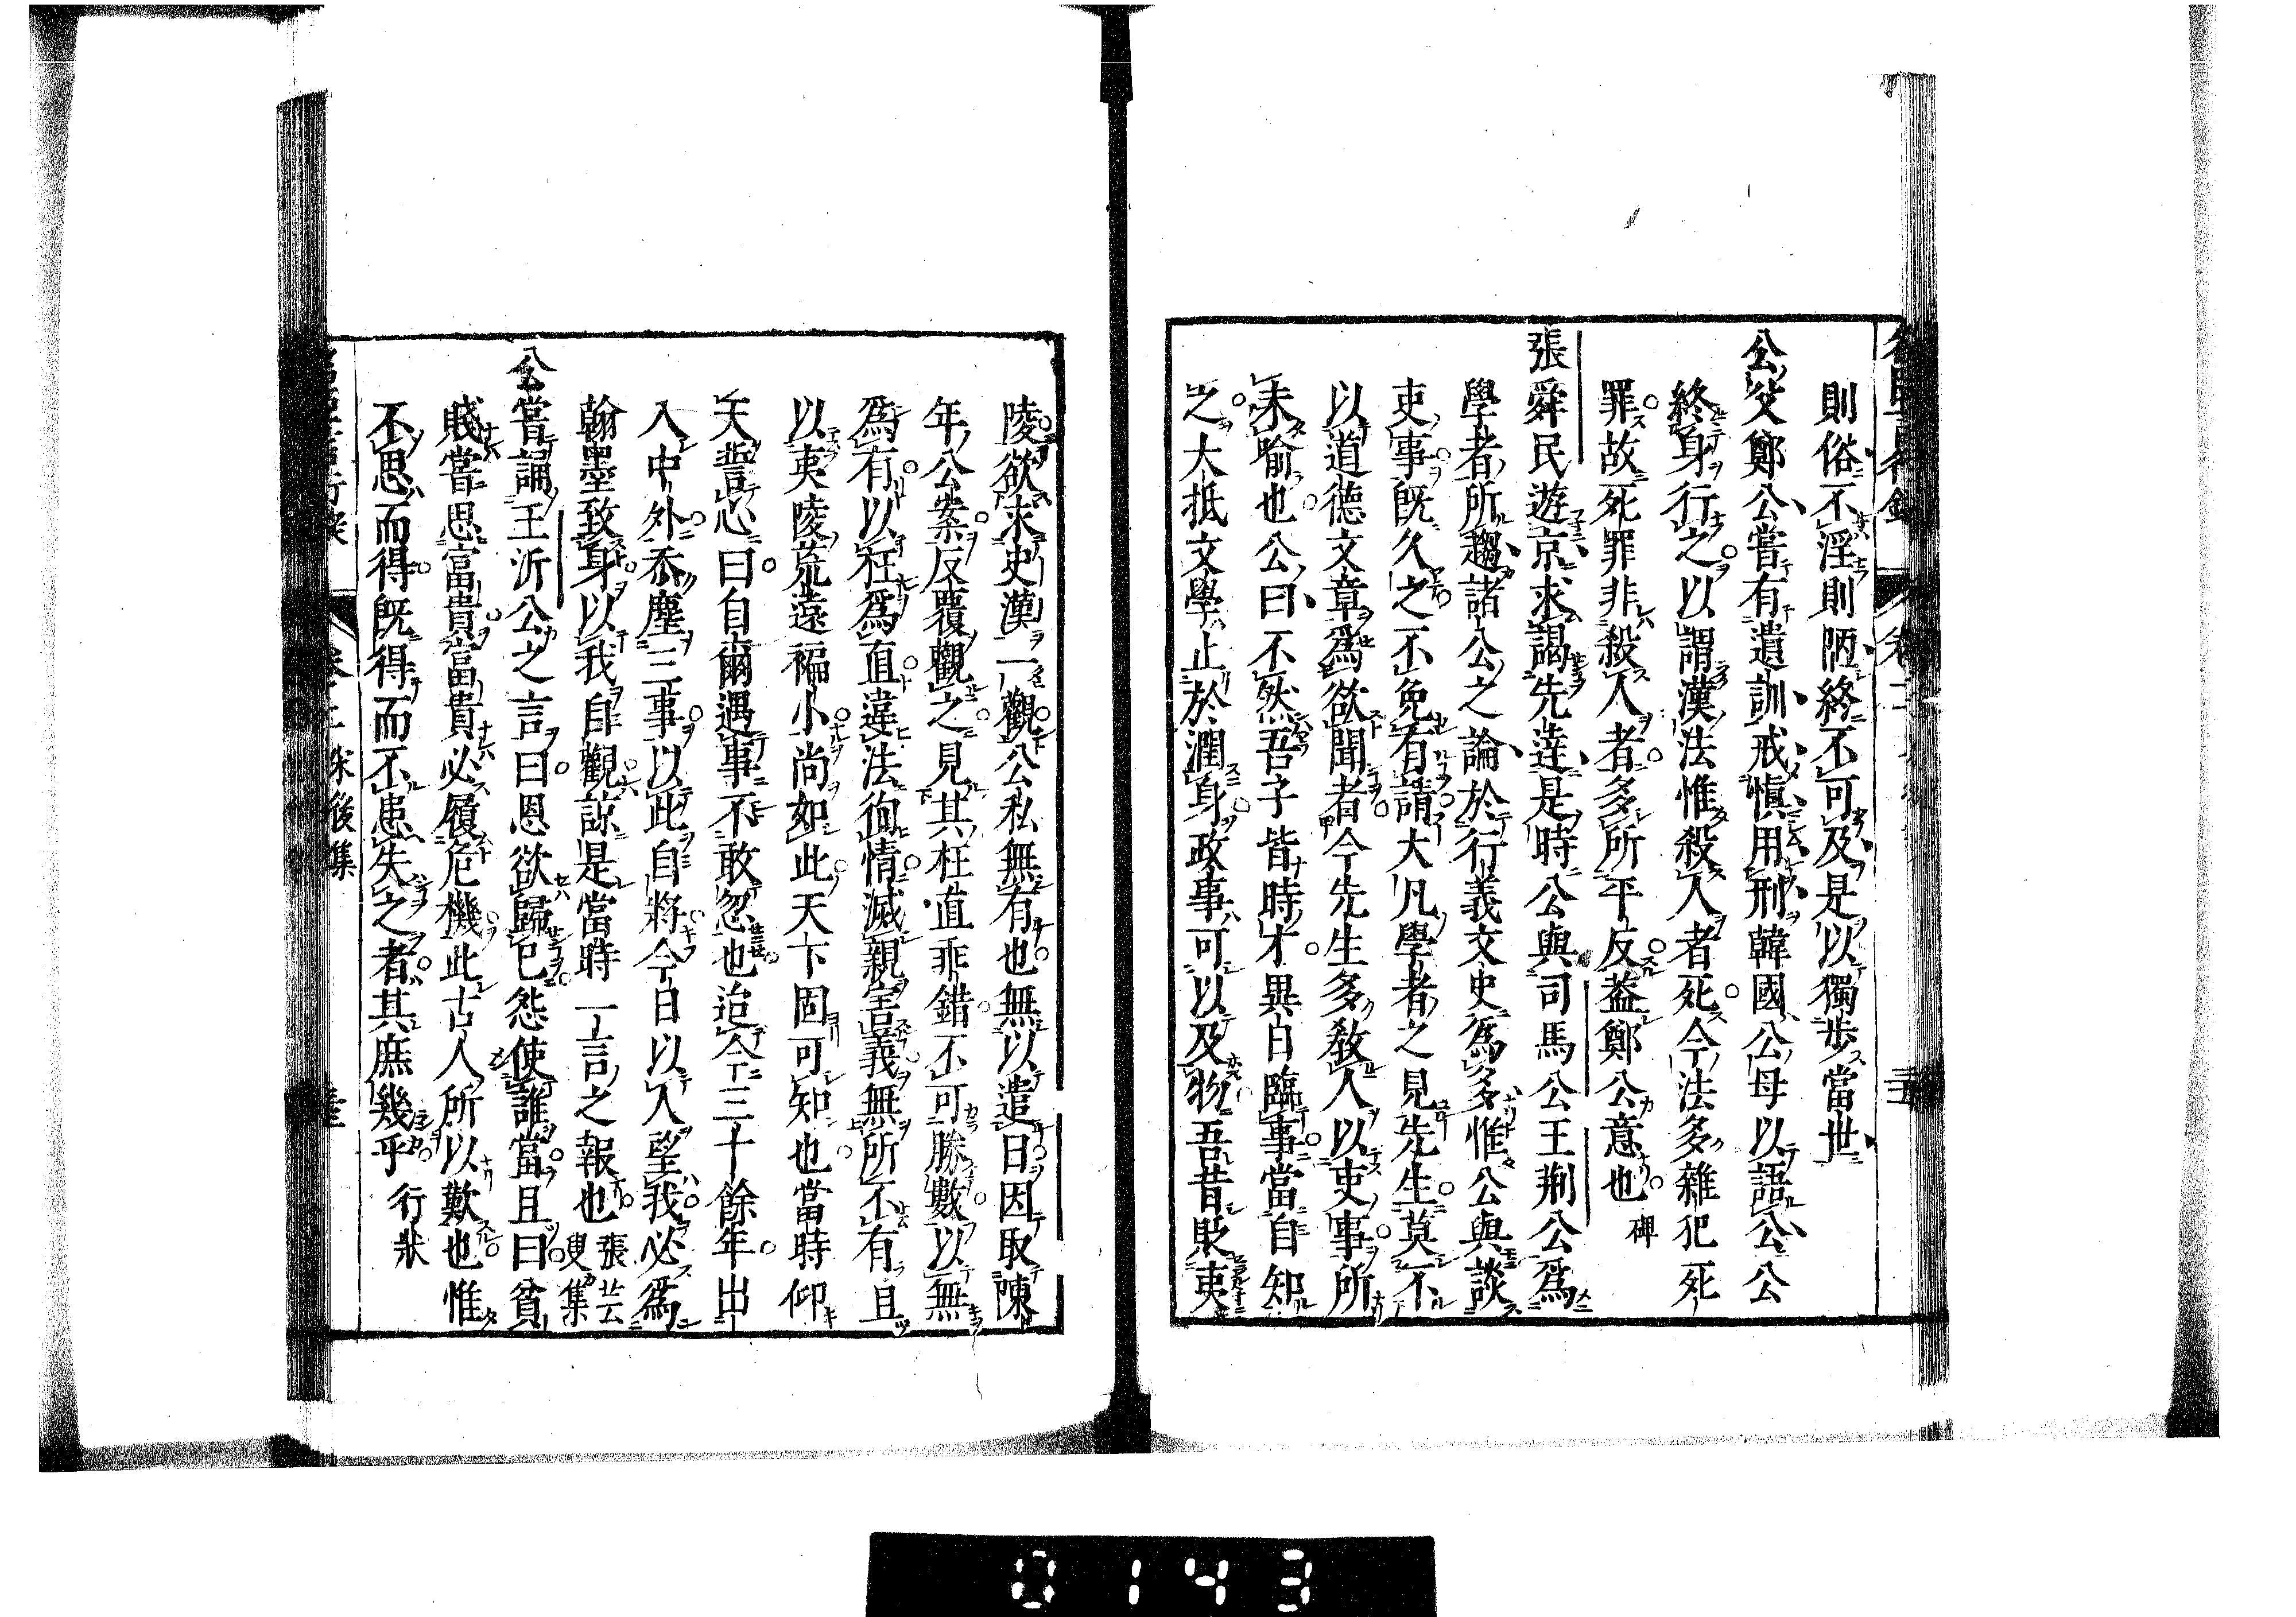 則俗不淫則陋終不可及是以獨步當世
公父鄭公嘗有遺訓戒慎用刑韓國公母以語公公
終身行之以謂漢法惟殺人者死今法多雜犯死
罪故死罪非殺人者多所平反蓋鄭公意也 碑
張舜民遊京求謁先達是時公與司馬公王荊公爲
學者所趨諸公之論於行義文史爲多惟公與談
吏事既久之不免有請大凡學者之見先生莫不
以道德文章爲欲聞者今先生多教人以吏事所
未喻也公曰不然吾子皆時才異日臨事當自知
之大抵文學止於潤身政事可以及物吾昔貶夷
陵欲求史漢一觀公私無有也無以遣日因取陳
年公案反覆觀之見其枉直乖錯不可勝數以無
爲有以枉爲直違法徇情滅親害義無所不有且
以夷陵荒遠褊小尚如此天下固可知也當時仰
天誓心曰自爾遇事不敢忽也迨今三十餘年出
入中外忝塵三事以此自將今日以人望我必爲
翰墨致身以我自觀諒是當時一言之報也 張芸叟集
公嘗誦王沂公之言曰恩欲歸已怨使誰當且曰貧
賤當思富貴富貴必履危機此古人所以歎也惟
不思而得既得而不患失之者其庶幾乎 行狀
宋後集